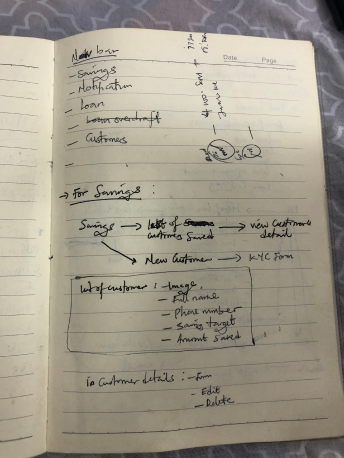 Nav bar
- Savings
- Notification
- Loan
- Loan overdraft
- Customers
-
Date Page
→ For Savings :
Savings → list of customers saved → view customers detail
→ New Customer → KYC Form
List of customer : - Image,
- Full name
- Phone number
- Saving target
- Amount saved
in customer details : - Form
- Edit
- Delete